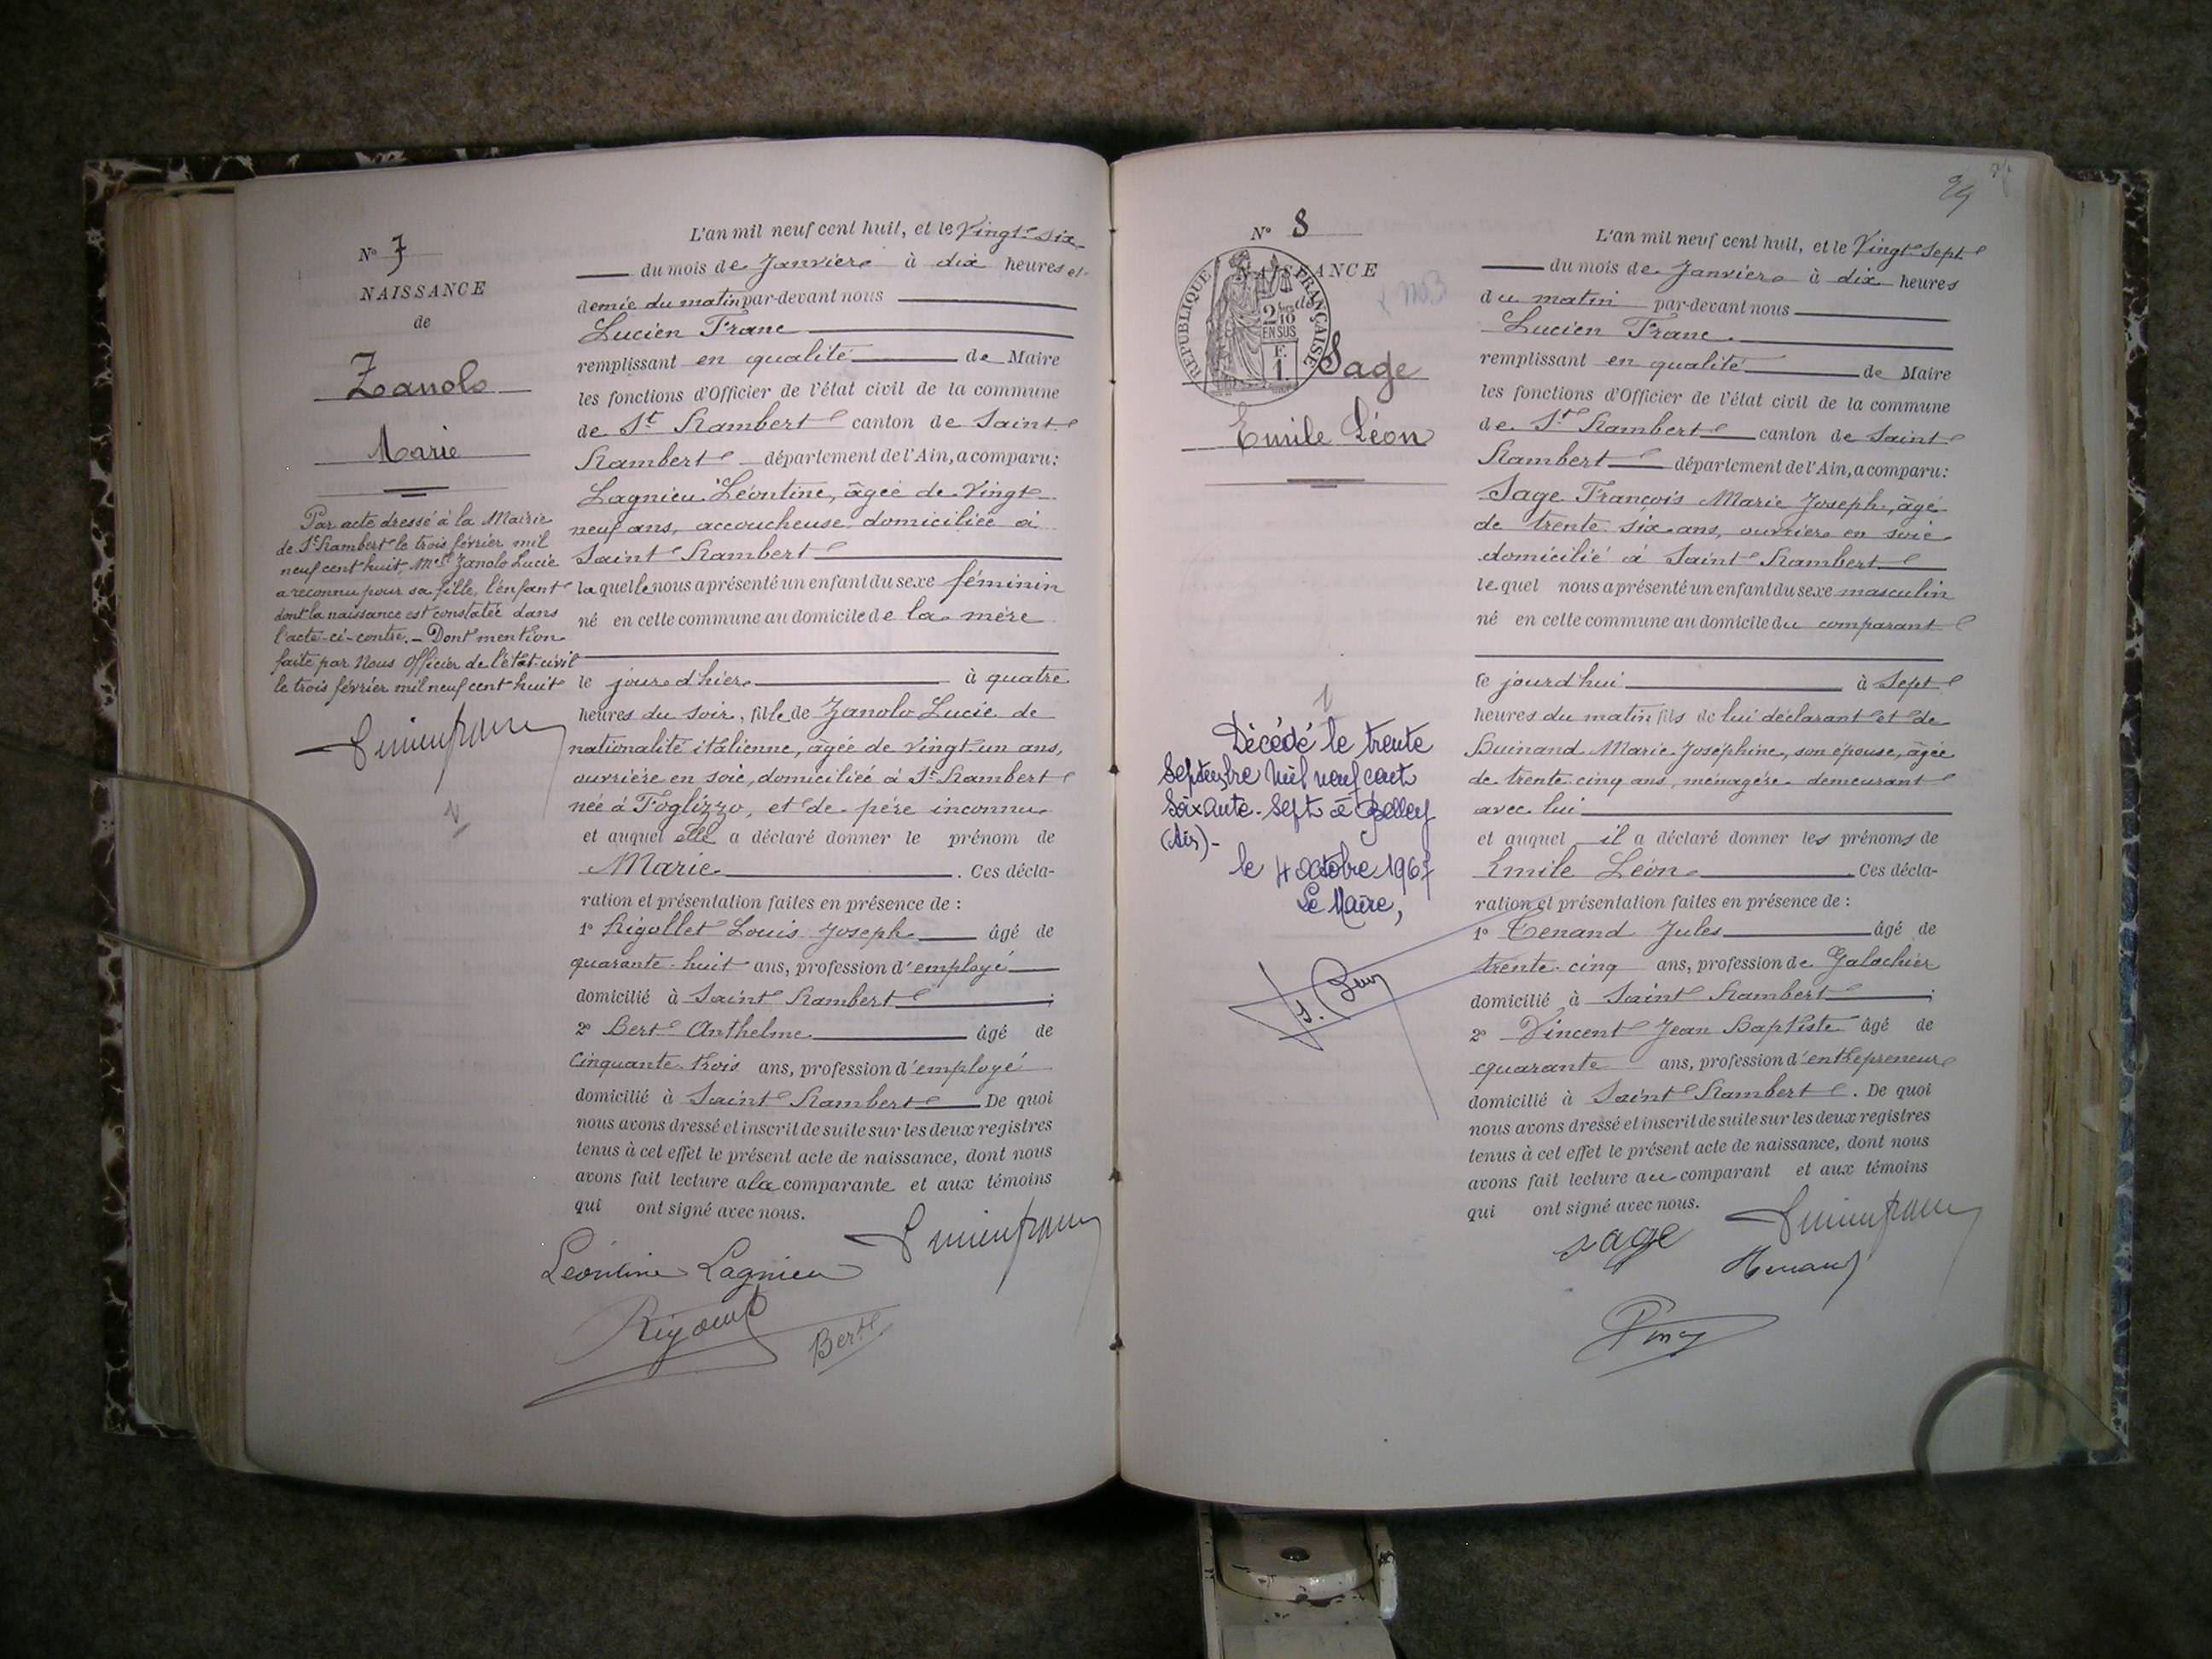 N° 7
NAISSANCE
de
Zanolo
Marie
Par acte dressé à la Mairie
de St Rambert le trois février mil
neuf cent huit, Melle Zanolo Lucie
a reconnu pour sa fille, l'enfant
dont la naissance est constatée dans
l'acte-ci-contre. - Dont mention
faite par Nous Officier de l'état-civil
le trois février mil neuf cent huit
L'an mil neuf cent huit, et le Vingt-six
du mois de Janvier à dix heures et
demie du matin par-devant nous
Lucien Franc
remplissant en qualité de Maire
les fonctions d'Officier de l'état civil de la commune
de St Rambert canton de Saint
Rambert département de l'Ain, a comparu:
Lagnieu Léontine, âgée de Vingt
neuf ans, accoucheuse domiciliée à
Saint Rambert
la quelle nous a présenté un enfant du sexe féminin
né en cette commune au domicile de la mère
le jour d'hier à quatre
heures du soir, fille de Zanolo Lucie de
nationalité italienne, âgée de vingt-un ans,
ouvrière en soie, domiciliée à St Rambert
née à Foglizzo, et de père inconnu
et auquel elle a déclaré donner le prénom de
Marie. Ces décla-
ration et présentation faites en présence de :
1° Rigollet Louis Joseph âgé de
quarante-huit ans, profession d'employé
domicilié à Saint Rambert ;
2° Bert Anthelme âgé de
cinquante-trois ans, profession d'employé
domicilié à Saint Rambert De quoi
nous avons dressé et inscrit de suite sur les deux registres
tenus à cet effet le présent acte de naissance, dont nous
avons fait lecture à la comparante et aux témoins
qui ont signé avec nous.
Léontine Lagnieu
Bert
29
N° 8
NAISSANCE
de
RÉPUBLIQUE FRANÇAISE
2/10
EN SUS
F.
1.
Sage
Emile Léon
Décédé le trente
Septembre mil neuf cent
soixante-sept à Belley
(Ain)-
le 4 octobre 1967
Le Maire,
L'an mil neuf cent huit, et le Vingt-Sept
du mois de Janvier à dix heures
du matin par-devant nous
Lucien Franc
remplissant en qualité de Maire
les fonctions d'Officier de l'état civil de la commune
de St Rambert canton de Saint
Rambert département de l'Ain, a comparu:
Sage François Marie Joseph, âgé
de trente-six ans, ouvrier en soie
domicilié à Saint Rambert
le quel nous a présenté un enfant du sexe masculin
né en cette commune au domicile du comparant
le jourd'hui à sept
heures du matin fils de lui déclarant et de
Guinand Marie Joséphine, son épouse, âgée
de trente-cinq ans, ménagère demeurant
avec lui
et auquel il a déclaré donner les prénoms de
Emile Léon Ces décla-
ration et présentation faites en présence de :
1° Tenand Jules âgé de
trente-cinq ans, profession de Galochier
domicilié à Saint Rambert ;
2° Vincent Jean Baptiste âgé de
quarante ans, profession d'entrepreneur
domicilié à Saint Rambert. De quoi
nous avons dressé et inscrit de suite sur les deux registres
tenus à cet effet le présent acte de naissance, dont nous
avons fait lecture au comparant et aux témoins
qui ont signé avec nous.
sage